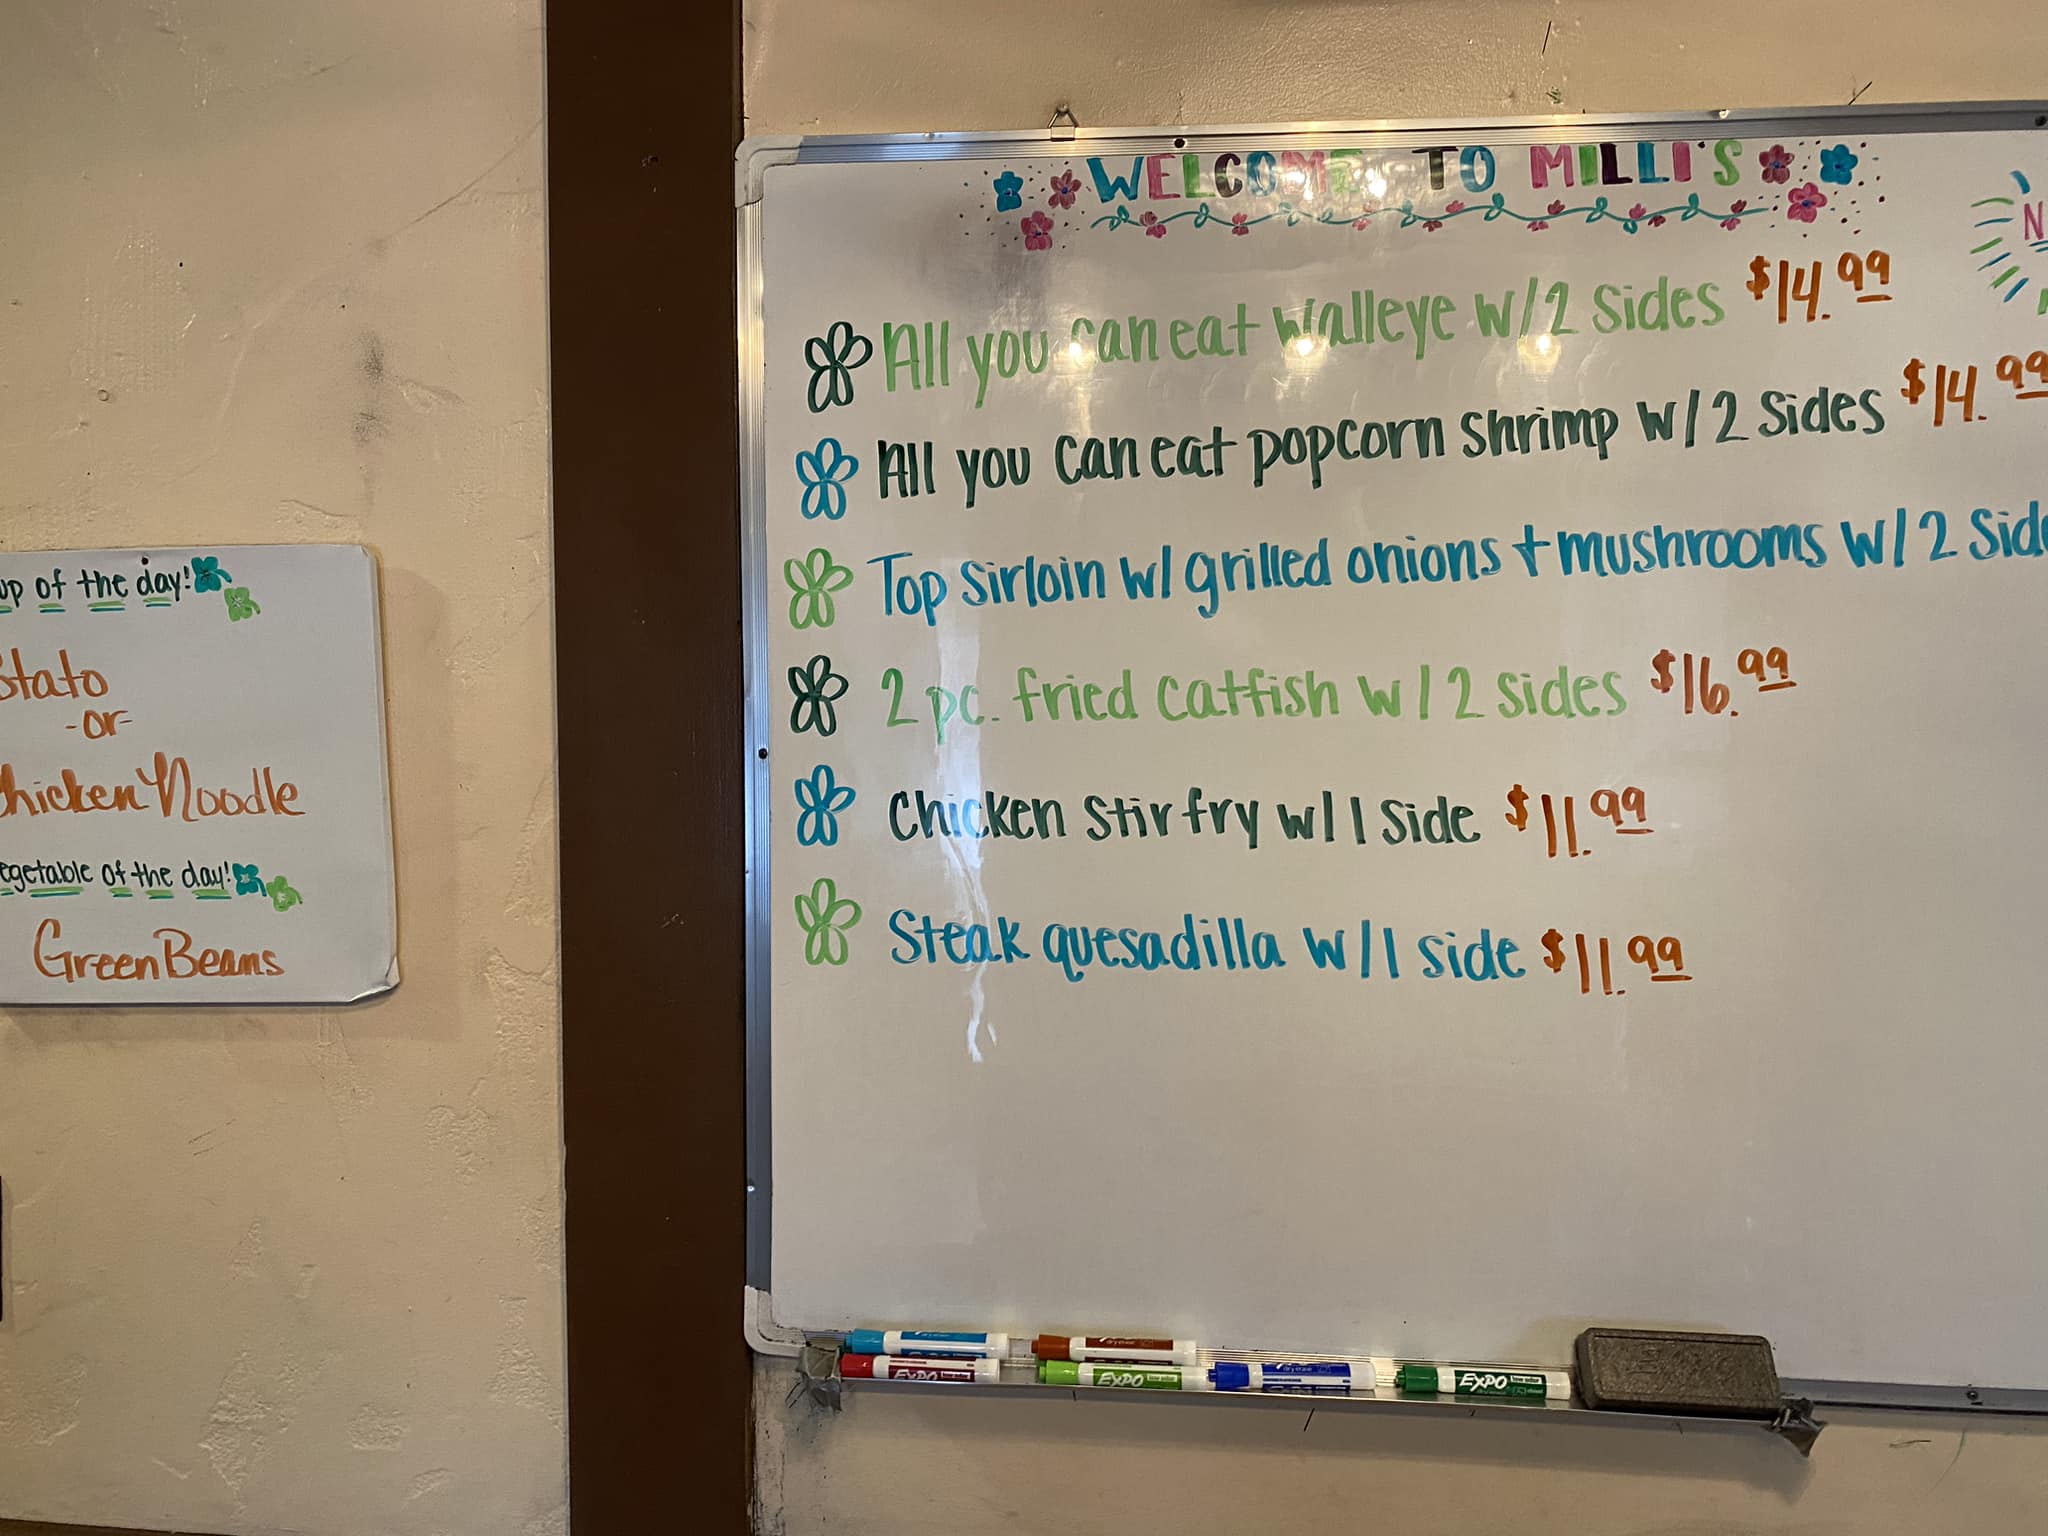 up of the day!
-or-
Chicken Noodle
egetable of the day!
Green Beans
WELCOME TO MILLI'S
All you can eat walleye w/2 sides $14.99
All you can eat popcorn shrimp w/2 sides $14.99
Top sirloin w/ grilled onions + mushrooms w/2 Side
2 pc. fried catfish w/2 sides $16.99
Chicken stir fry w/1 side $11.99
Steak quesadilla w/1 side $11.99
EXPO
EXPO
EXPO